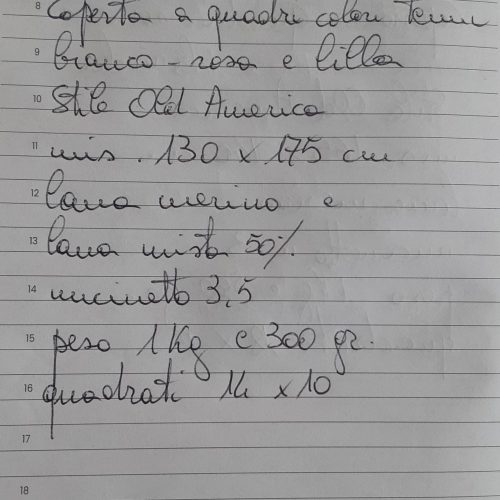 8 Coperta a quadri colori tenui
9 bianco - rosa e lilla
10 Stile Old America
11 mis. 130 x 175 cm
12 lana merino e
13 lana mista 50%
14 uncinetto 3,5
15 peso 1 Kg e 300 gr.
16 quadrati 14 x 10
17
18